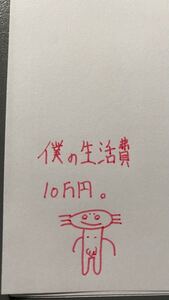 僕の生活費
10万円。